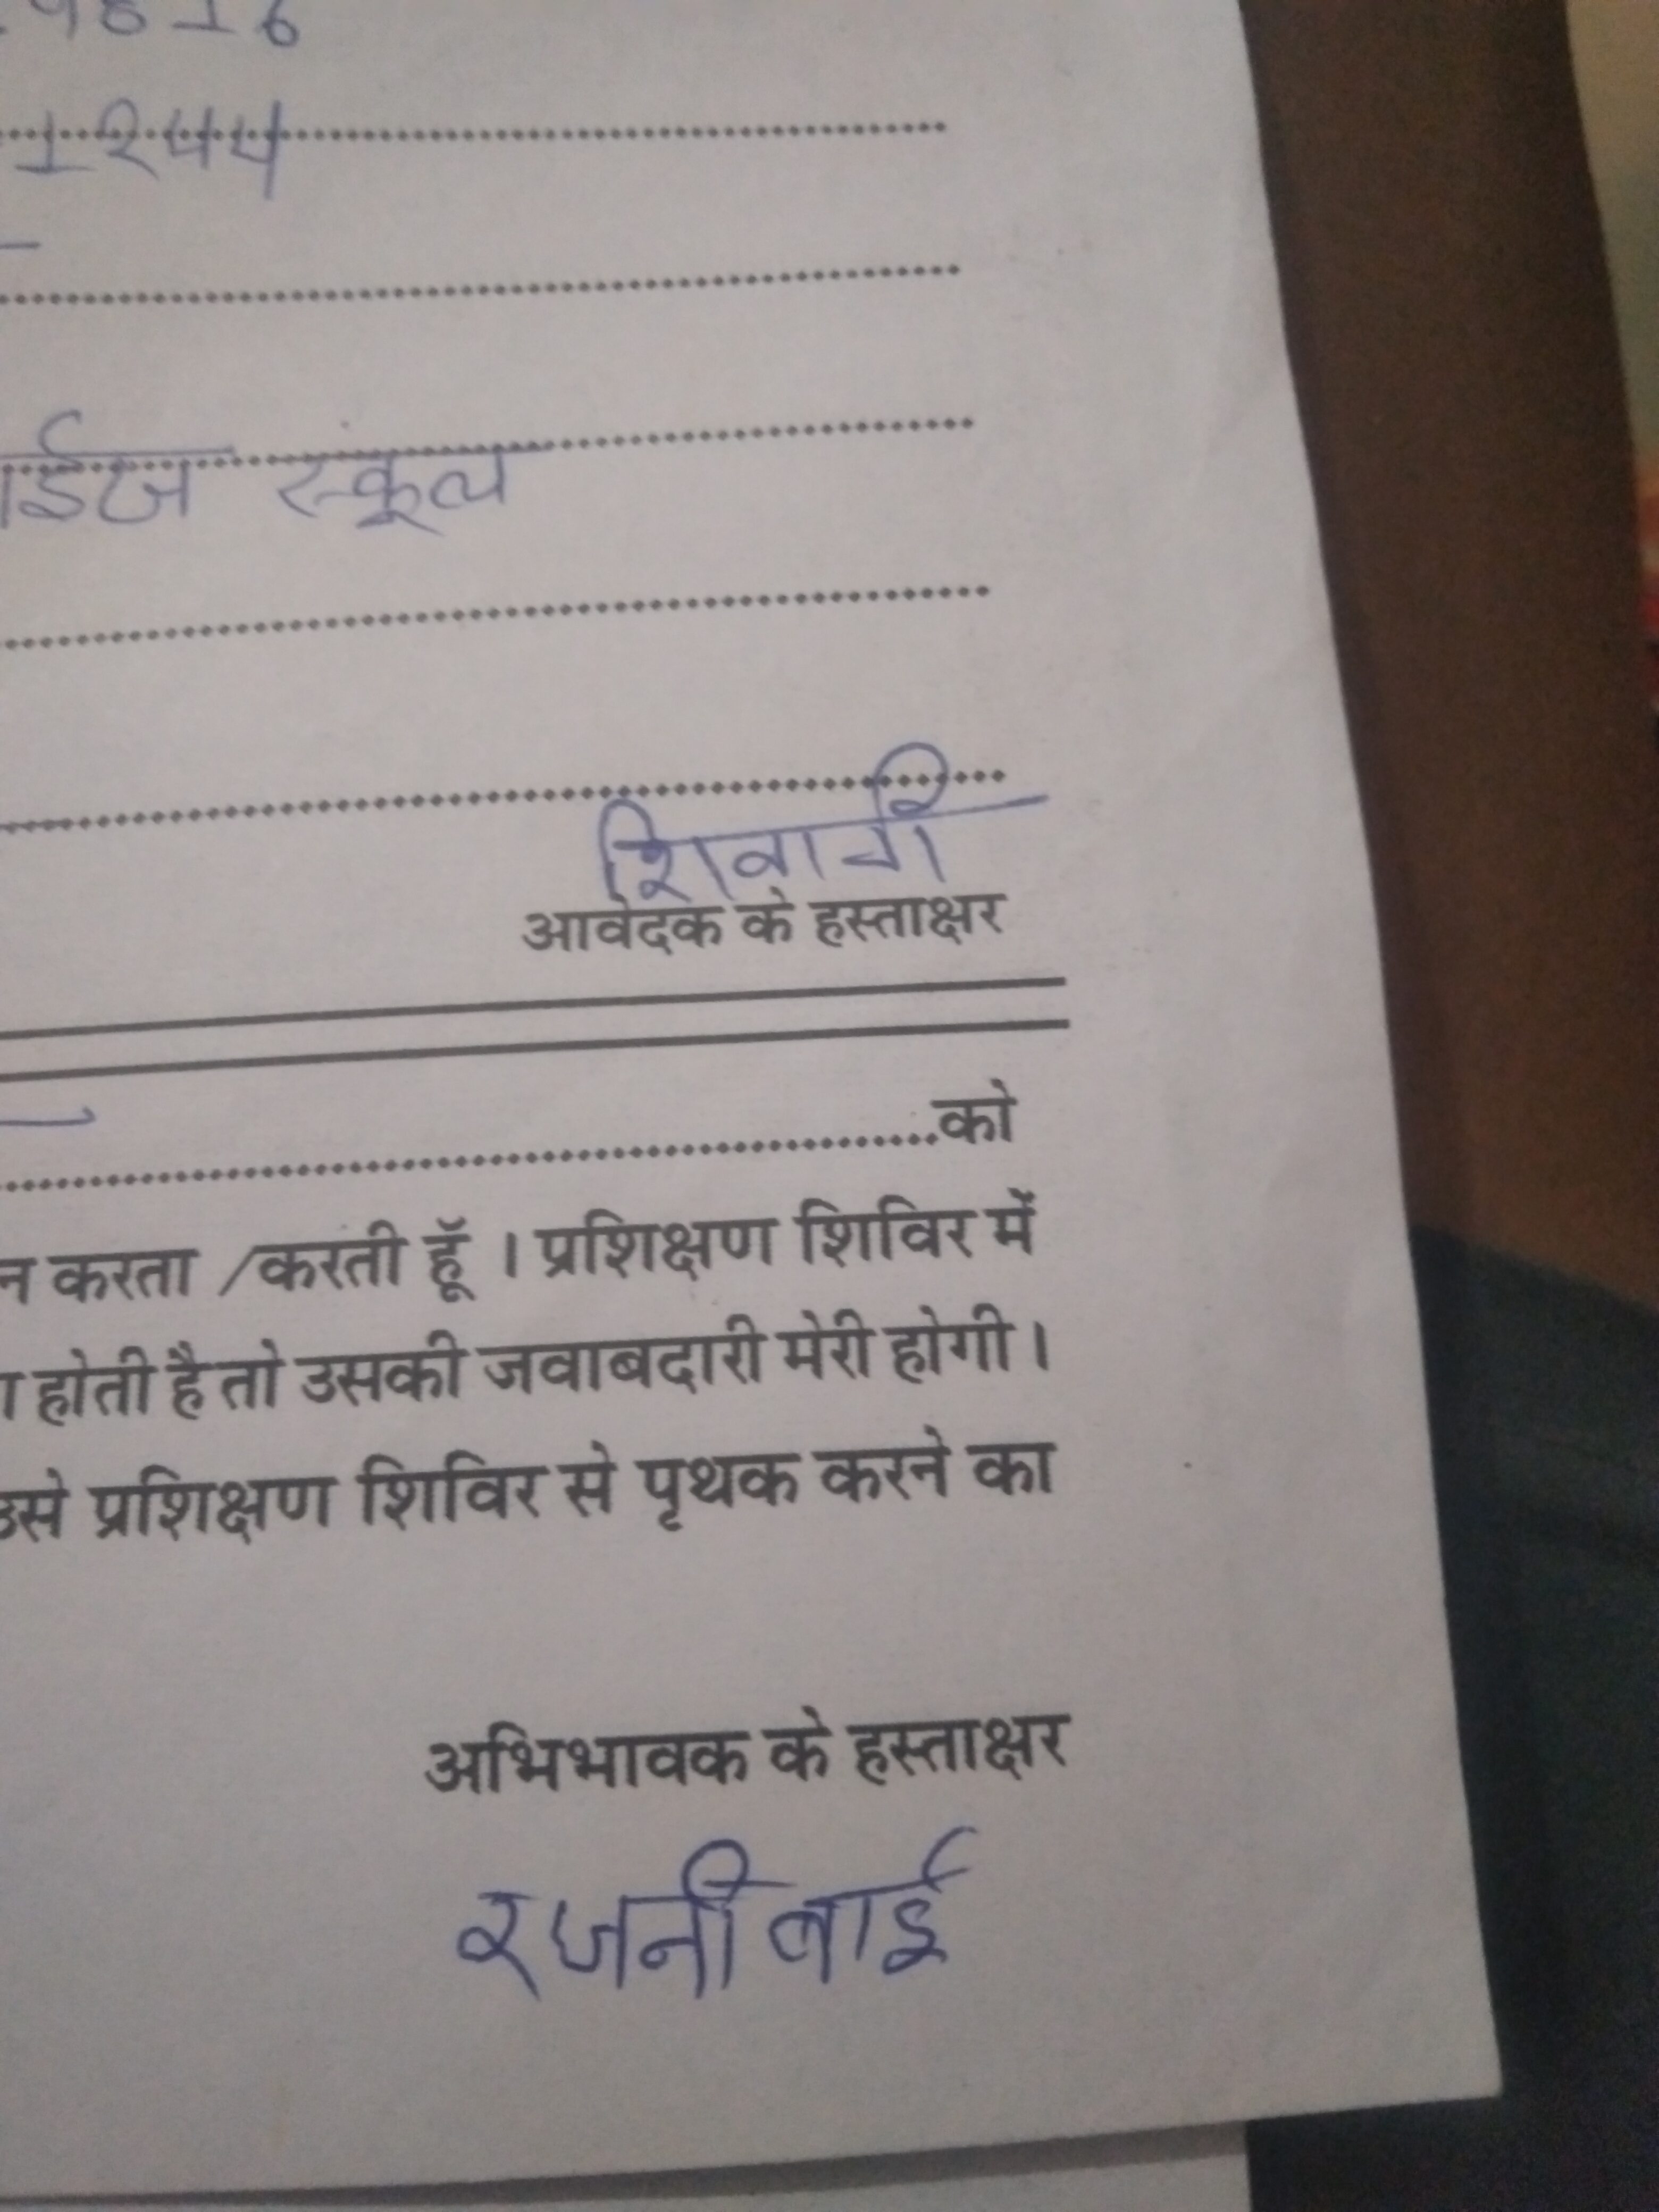 16
1244
स्कूल
आवेदक के हस्ताक्षर
को
न करता /करती हूॅं । प्रशिक्षण शिविर में
होती है तो उसकी जवाबदारी मेरी होगी ।
उसे प्रशिक्षण शिविर से पृथक करने का
अभिभावक के हस्ताक्षर
रजनी बाई